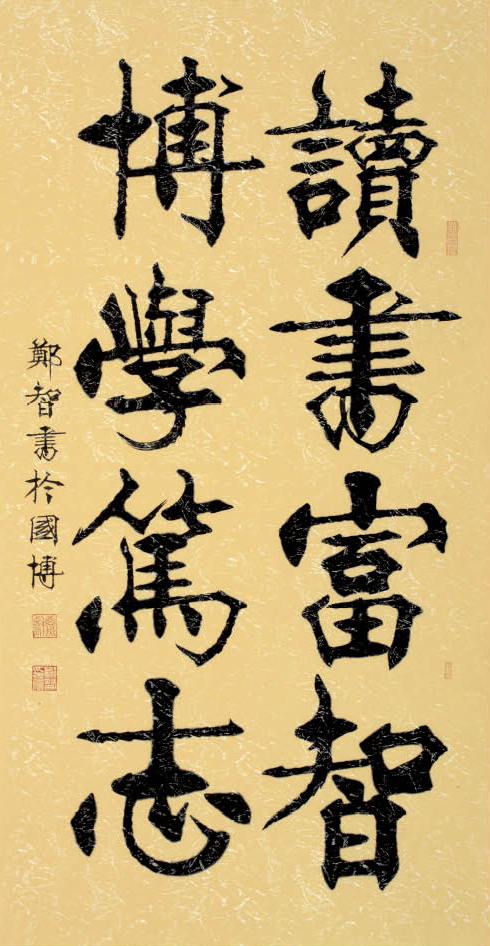 讀書富智
博學篤志
鄭智書於國博